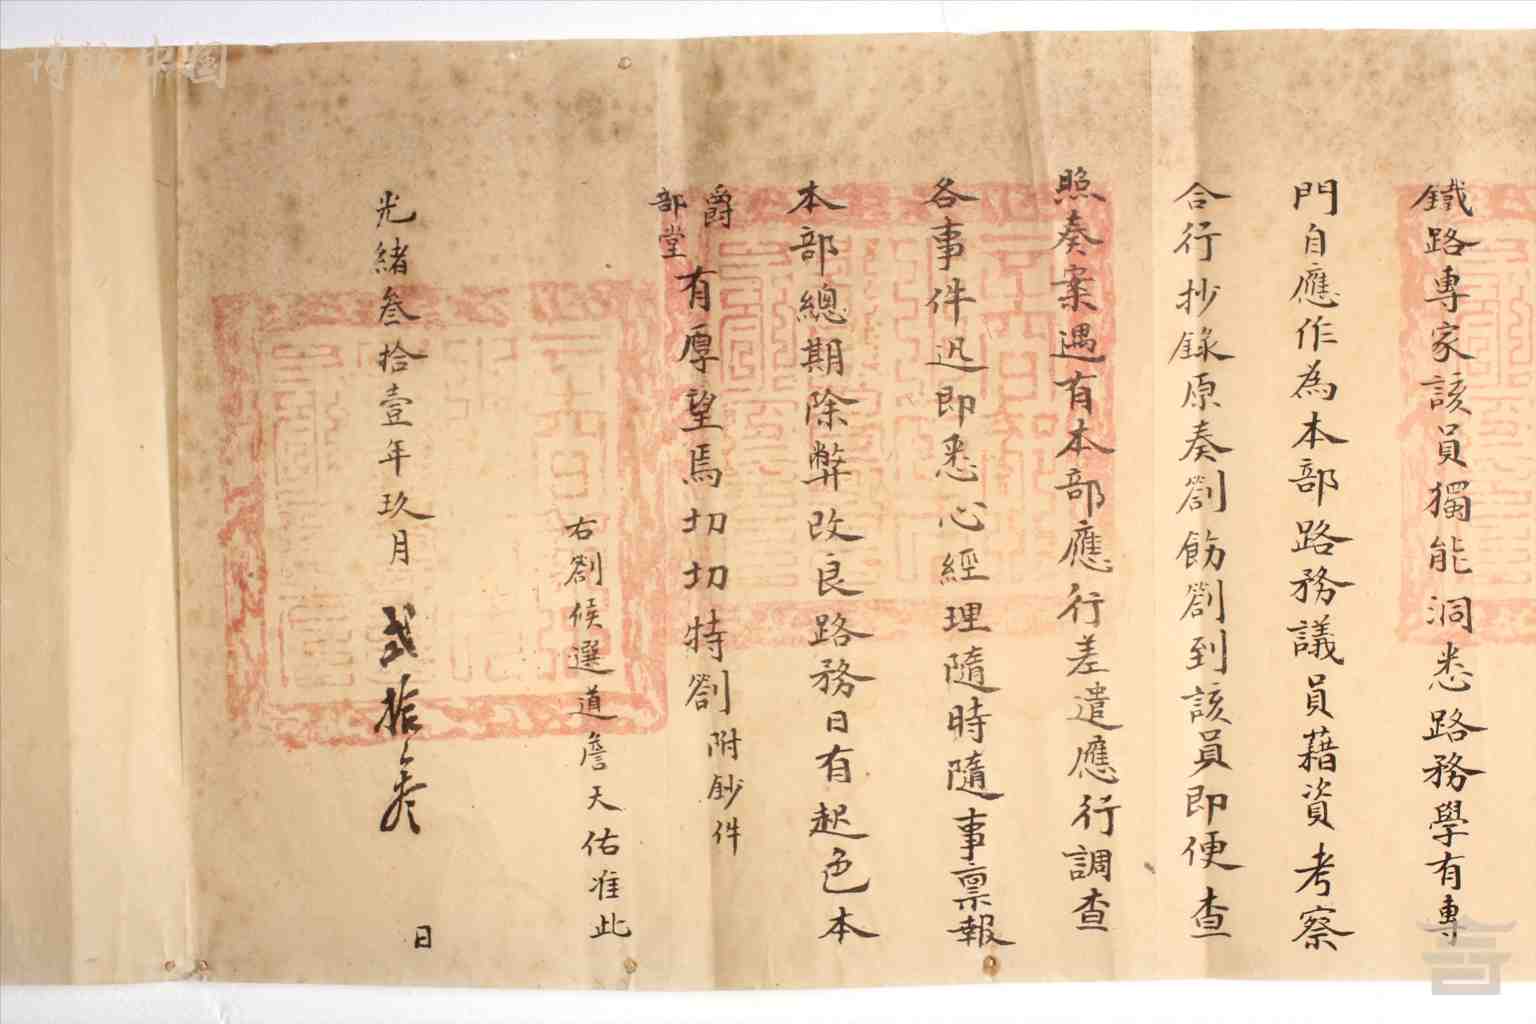 鐵路專家該員獨能洞悉路務學有專
門自應作為本部路務議員藉資考察
合行抄錄原奏劄飭劄到該員即便查
照奏案遇有本部應行差遣應行調查
各事件迅即悉心經理隨時隨事稟報
本部總期除弊改良路務日有起色本
爵
部堂
有厚望焉切切特劄
附鈔件
右劄候選道詹天佑准此
光緒叁拾壹年玖月貳拾叁日
博物中国